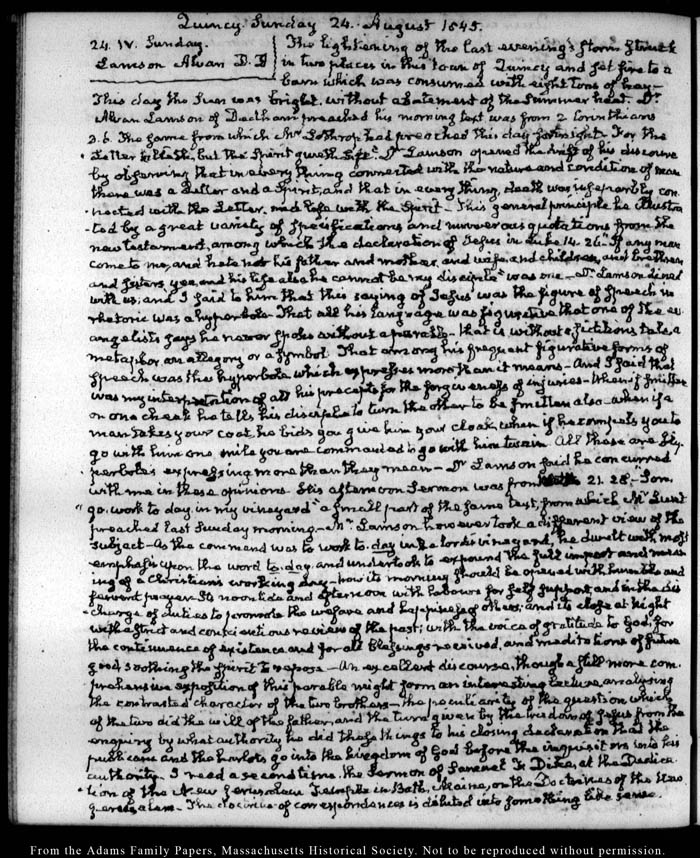 Quincy Sunday 24. August 1845.
24. IV. Sunday.
Lamson Alvan D.D
The lightening of the last evening's storm struck
in two places in this town of Quincy and set fire to a
barn which was consumed with eight tons of hay—
This day the Sun was bright, without abatement of the Summer heat. Dr
Alvan Lamson of Dedham preached his morning text was from 2 Corinthians
3. 6. The same from which Mr Lothrop had preached this day fortnight. For the
Letter killeth, but the Spirit giveth Life. Dr Lamson opened the drift of his discourse
by observing that in every thing connected with the nature and condition of man
there was a Letter and a Spirit, and that in every thing, death was inseparably con-
nected with the Letter, and life with the Spirit— This general principle he illustra
-ted by a great variety of specifications and numerous quotations from the
new testament, among which the declaration of Jesus in Luke 14. 26. If any man
come to me, and hate not his father and mother, and wife, and children, and brethren
and sisters, yea, and his life also he cannot be my disciple" was one— Dr Lamson dined
with us, and I said to him that this saying of Jesus was the figure of speech in
rhetoric was a hyperbole. That all his language was figurative that one of the ev
angelists says he never spoke without a parable— that is without a fictitious tale, a
metaphor an allegory or a symbol. That among his frequent figurative forms of
speech was the hyperbole which expresses more than it means— And I said that
was my interpretation of all his precepts for the forgiveness of injuries— When if smitten
on one cheek he tells his disciple to turn the other to be smitten also— when if a
man takes your coat he bids you give him your cloak, when if he compels you to
go with him one mile you are commanded to go with him twain. All these are hy-
perboles expressing more than they mean— Dr Lamson said he concurred
with me in these opinions. His afternoon Sermon was from 21. 28. "Son,
go, work to day, in my vineyard" a small part of the same text, from which Mr Lunt
preached last Sunday morning— Mr. Lamson however took a different view of the
subject— As the command was to work to-day in the lord's vineyard, he dwelt with most
emphasis upon the word to-day, and undertook to expound the full import and mean
ing of a Christian's working day— how its morning should be opened with humble and
fervent prayer. Its noontide and afternoon with labours for self support, and in the dis
-charge of duties to promote the welfare and happiness of others, and its close at night
with strict and conscientious review of the past; with the voice of gratitude to God, for
the continuance of existence and for all blessings received, and meditations of future
good soothing the spirit to repose— An excellent discourse, though a still more com-
prehensive exposition of this parable might form an interesting lecture analysing
the contrasted character of the two brothers— the peculiarity of the question which
of the two did the will of the father, and the turn given by the wisdom of Jesus from the
enquiry by what authority he did these things to his closing declaration that the
publicans and the harlots go into the kingdom of God before the inquisitors into his
authority. I read a second time, the Sermon of Samuel F. Dike, at the Dedica
-tion of the New Jerusalem Temple in Bath, Maine, on the Doctrines of the New
Jerusalem— The doctrine of correspondences is diluted into something like sense.
From the Adams Family Papers, Massachusetts Historical Society. Not to be reproduced without permission.